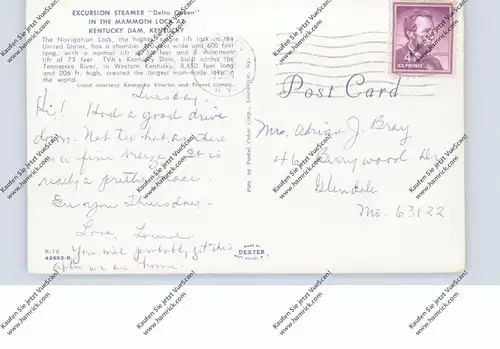 EXCURSION STEAMER "Delta Queen"
IN THE MAMMOTH LOCK AT
KENTUCKY DAM, KENTUCKY
The Navigation Lock, the highest single lift lock in the
United States, has a chamber 110 feet wide and 600 feet
long, with a normal lift of 56 feet and a maximum
lift of 73 feet. TVA's Kentucky Dam, built across the
Tennessee River, in Western Kentucky, 8,650 feet long
and 206 ft. high, created the largest man-made lake in
the world.
Color courtesy Kentucky Tourist and Travel
Tuesday
Hi! Had a good drive
down. Not too hot, as there
is a fine breeze. It is
really a pretty place.
See you Thursday -
Love,
You will probably get this
after we are home.
K-12
42692-B
Post Card
Mrs. Adrian J. Bray
46 Berrywood Dr.
Glendale
Mo. 63122
Pub. by Postal Color Corp., Louisville, Ky.
MADE BY
DEXTER
WEST NYACK, N.Y.
4¢
U.S. POSTAGE
Kaufen Sie jetzt VueScan!
www.hamrick.com